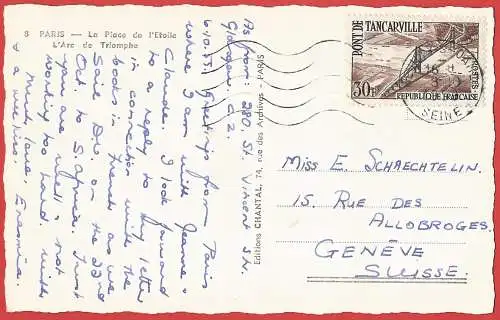 8 PARIS — La Place de l'Etoile
L'Arc de Triomphe
As from 280, St. Vincent St.
Glasgow. C. 2.
6.10.59. Greetings from Paris
where I am with Jeanne &
Claude. I look forward
to a reply to my letter
in connection with the
books in French as we
Sail Dv. on the 23rd
Oct. to S. Africa. Trust
you are well & not
working too hard. With
much love, Erasmia.
Editions CHANTAL, 74, rue des Archives - PARIS
PONT DE
TANCARVILLE
POSTES
30F
REPUBLIQUE FRANÇAISE
SEINE
MISS E. SCHAECHTELIN.
15, RUE DES
ALLOBROGES.
GENÈVE
SUISSE.